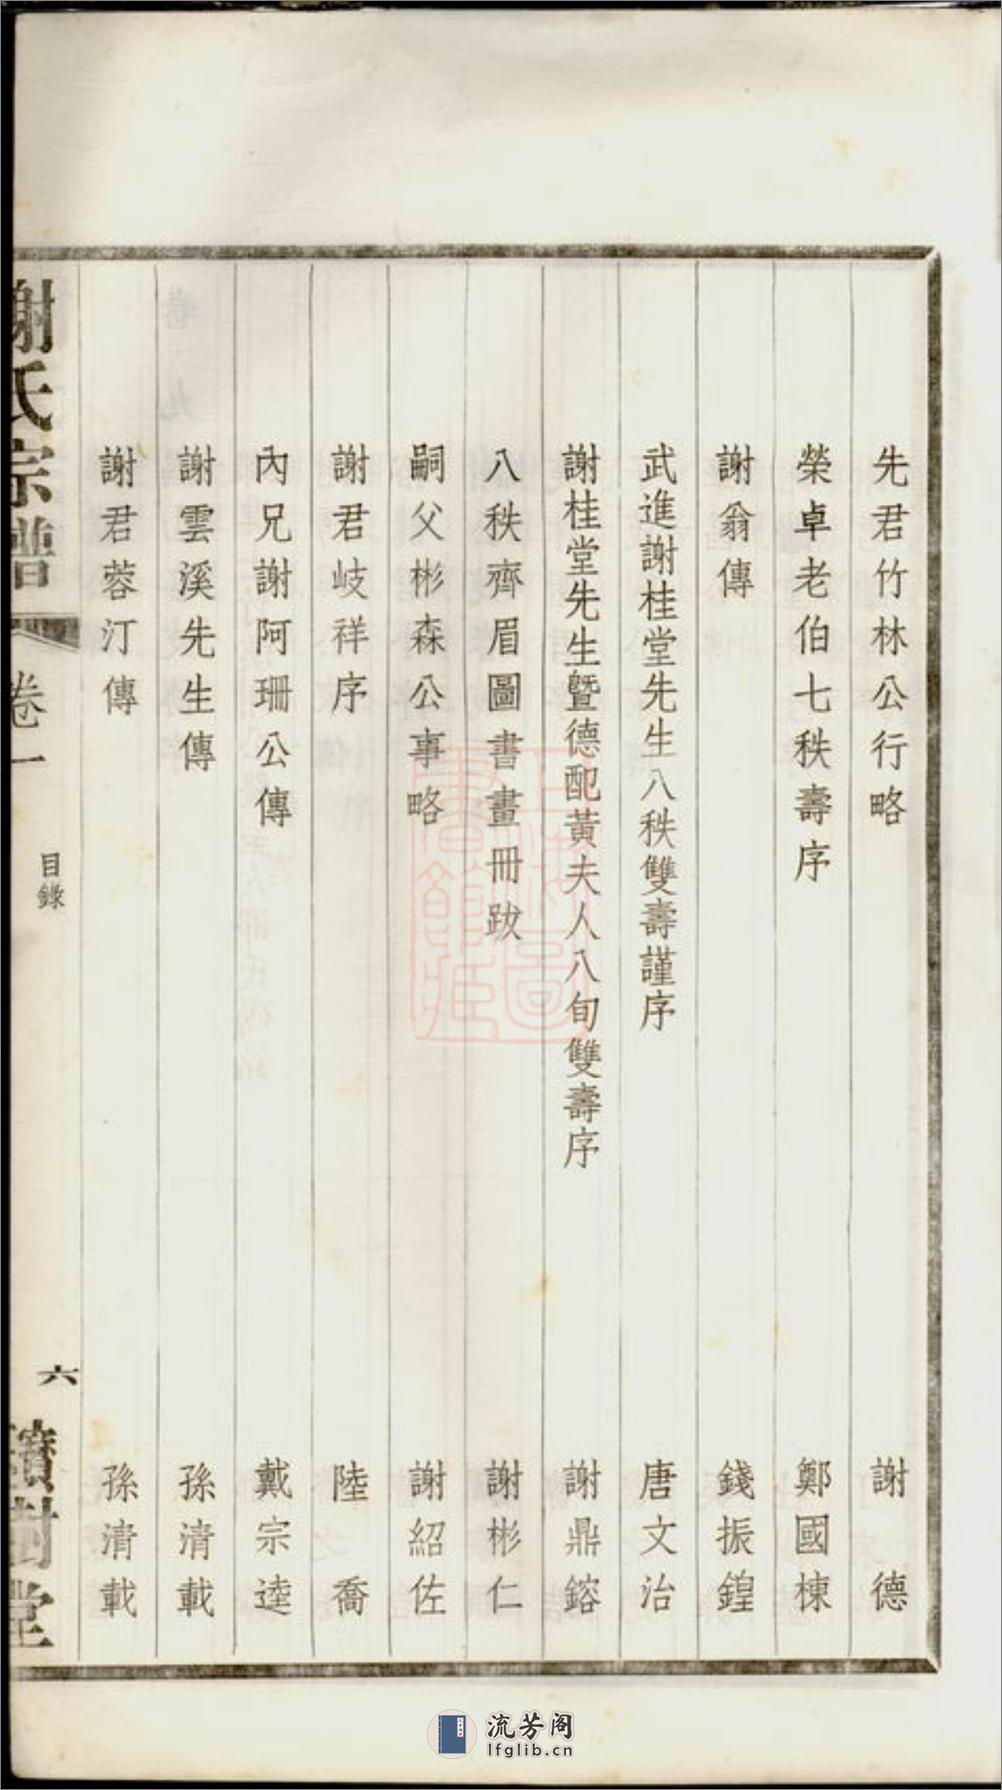 先君竹林公行略 謝德
榮卓老伯七秩壽序 鄭國棟
謝翁傳 錢振鍠
武進謝桂堂先生八秩雙壽謹序 唐文治
謝桂堂先生暨德配黃夫人八旬雙壽序 謝鼎鎔
八秩齊眉圖書畫冊跋 謝彬仁
嗣父彬森公事略 謝紹佐
謝君岐祥序 陸喬
內兄謝阿珊公傳 戴宗逵
謝雲溪先生傳 孫清載
謝君蓉汀傳 孫清載
謝氏宗譜 卷一 目錄 六 堂
流芳阁
lfglib.cn